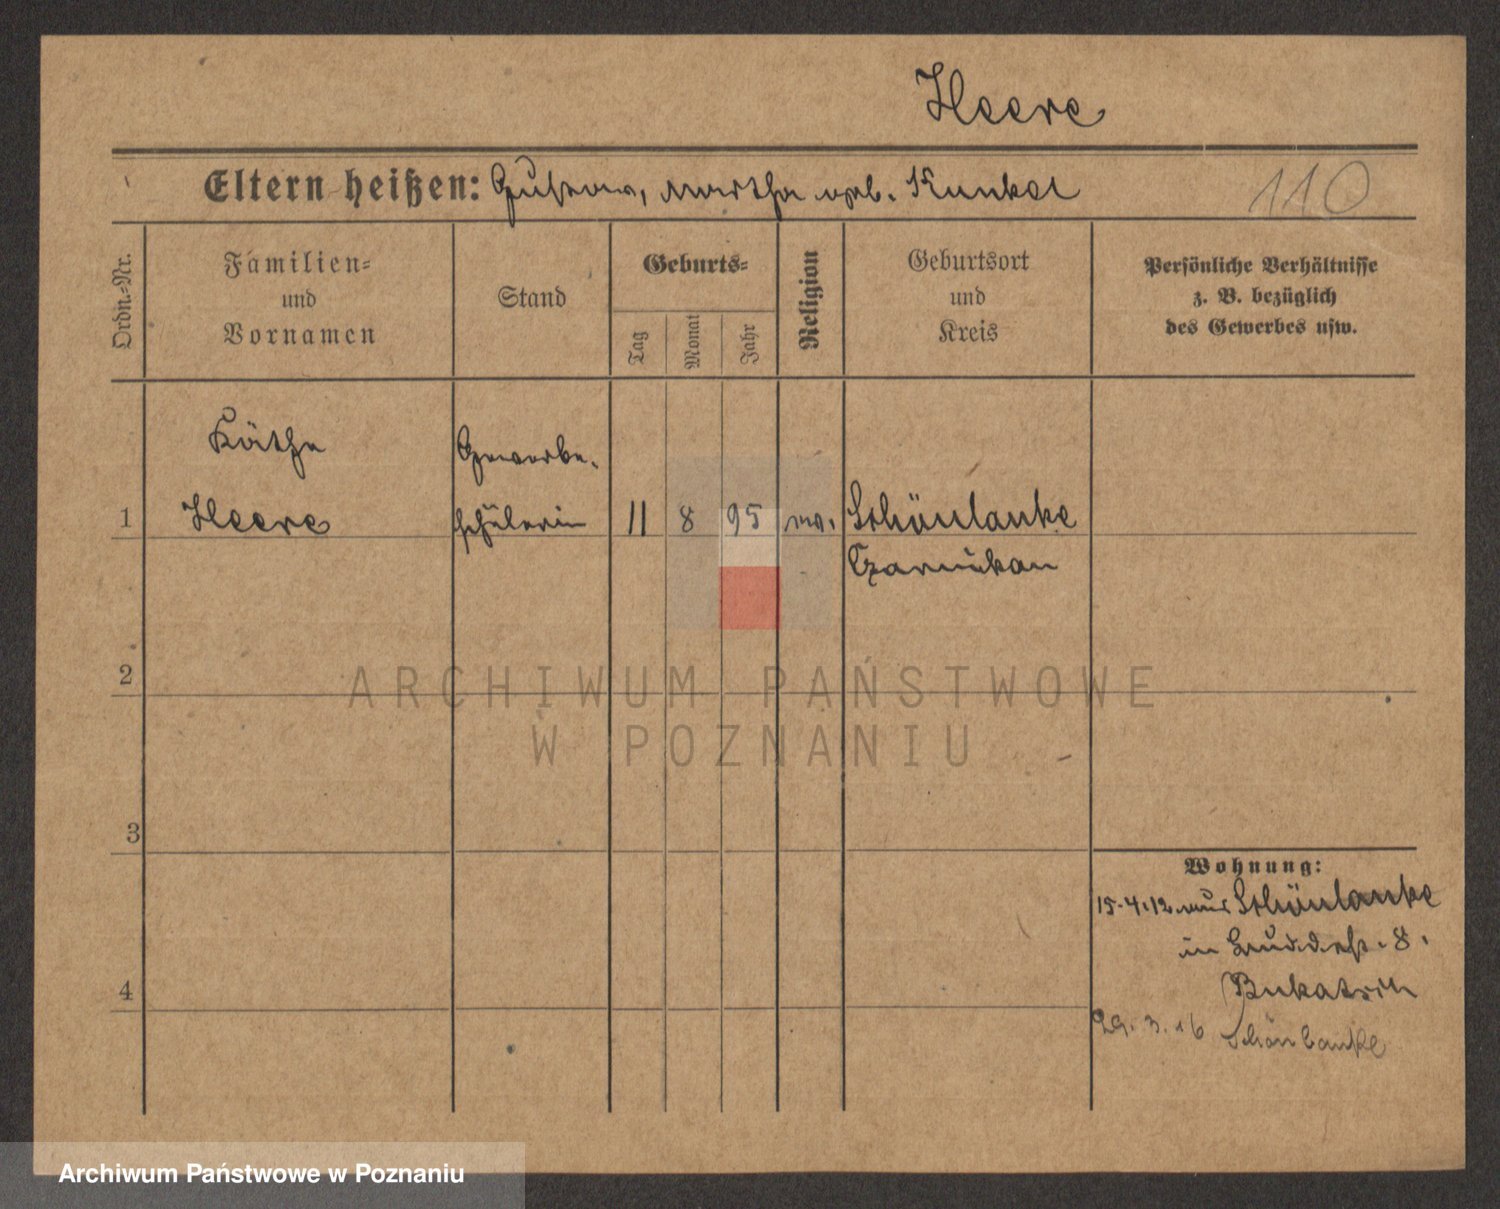 Heere
Eltern heißen: Gustav, Martha geb. Kunkel 110
Ordn.-Nr.
Familien-
und
Vornamen
Stand
Geburts-
Tag
Monat
Jahr
Religion
Geburtsort
und
Kreis
Persönliche Verhältnisse
z. B. bezüglich
des Gewerbes usw.
Käthe Gewerbe-
1 Heere schülerin 11 8 95 Schönlanke
Czarnikau
2
ARCHIWUM PAŃSTWOWE
W POZNANIU
3
Wohnung:
15.4.12 aus Schönlanke
in 8.
4
29.3.16 Schönlanke
Archiwum Państwowe w Poznaniu